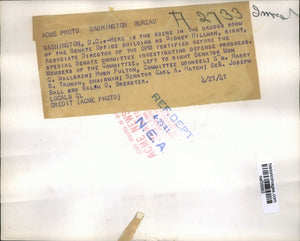 A 2733
ACME PHOTO WASHINGTON BUREAU
WASHINGTON, D.C.--HERE IS THE SCENE IN THE CAUCUS ROOM
OF THE SENATE OFFICE BUILDING AS SIDNEY HILLMAN, RIGHT,
ASSOCIATE DIRECTOR OF THE OPM TESTIFIED BEFORE THE
SPECIAL SENATE COMMITTEE INVESTIGATING DEFENSE PROGRESS.
MEMBERS OF THE COMMITTEE, LEFT TO RIGHT SENATOR MON
C. WALLGREN; HUGH FULTON, COMMITTEE COUNSEL; SEN. HARRY
S. TRUMAN, CHAIRMAN; SENATOR CARL A. HATCH; SEN. JOSEPH
BALL AND RALPH O. BREWSTER.
LOCALS CL 4/21/41
CREDIT (ACME PHOTO)
REF. DEPT.
N.E.A.